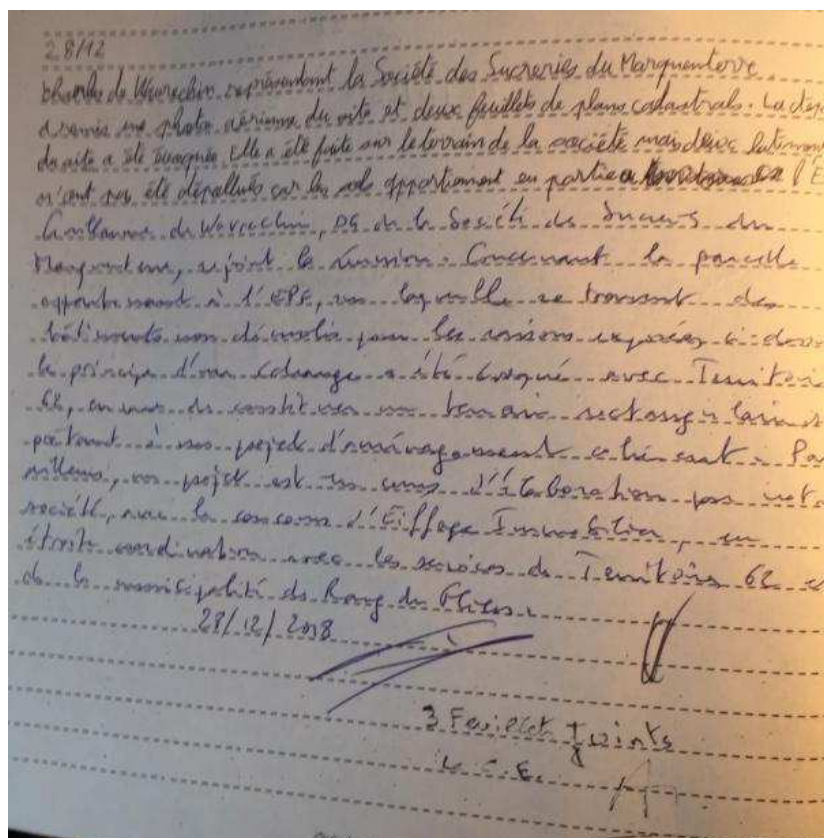 28/12
Charles de Wavrechin représentant la Société des Sucreries du Marquenterre.
a remis une photo aérienne du site et deux feuillets de plans cadastrals. La dép
du site a été évoquée. Elle a été faite sur le terrain de la société mais deux batiment
n'ont pas été dépollués car les sols appartiennent en partie a l'E
Guillaume de Wavrechin, DG de la Société des Sucreries du
Marquenterre, rejoint la réunion. Concernant la parcelle
appartenant à l'EPF, sur laquelle se trouvent des
bâtiments non démolis pour les raisons exposées ci-dessus
le principe d'un échange a été évoqué avec Territoires
62, en vue de constituer un terrain rectangulaire
portant à un projet d'aménagement cohérent. Par
ailleurs, un projet est en cours d'élaboration par notre
société, avec le concours d'Eiffage Immobilier, en
étroite coordination avec les services de Territoires 62 e
de la municipalité de Rang du Fliers.
28/12/2018
3 Feuillets joints
Le C.E.